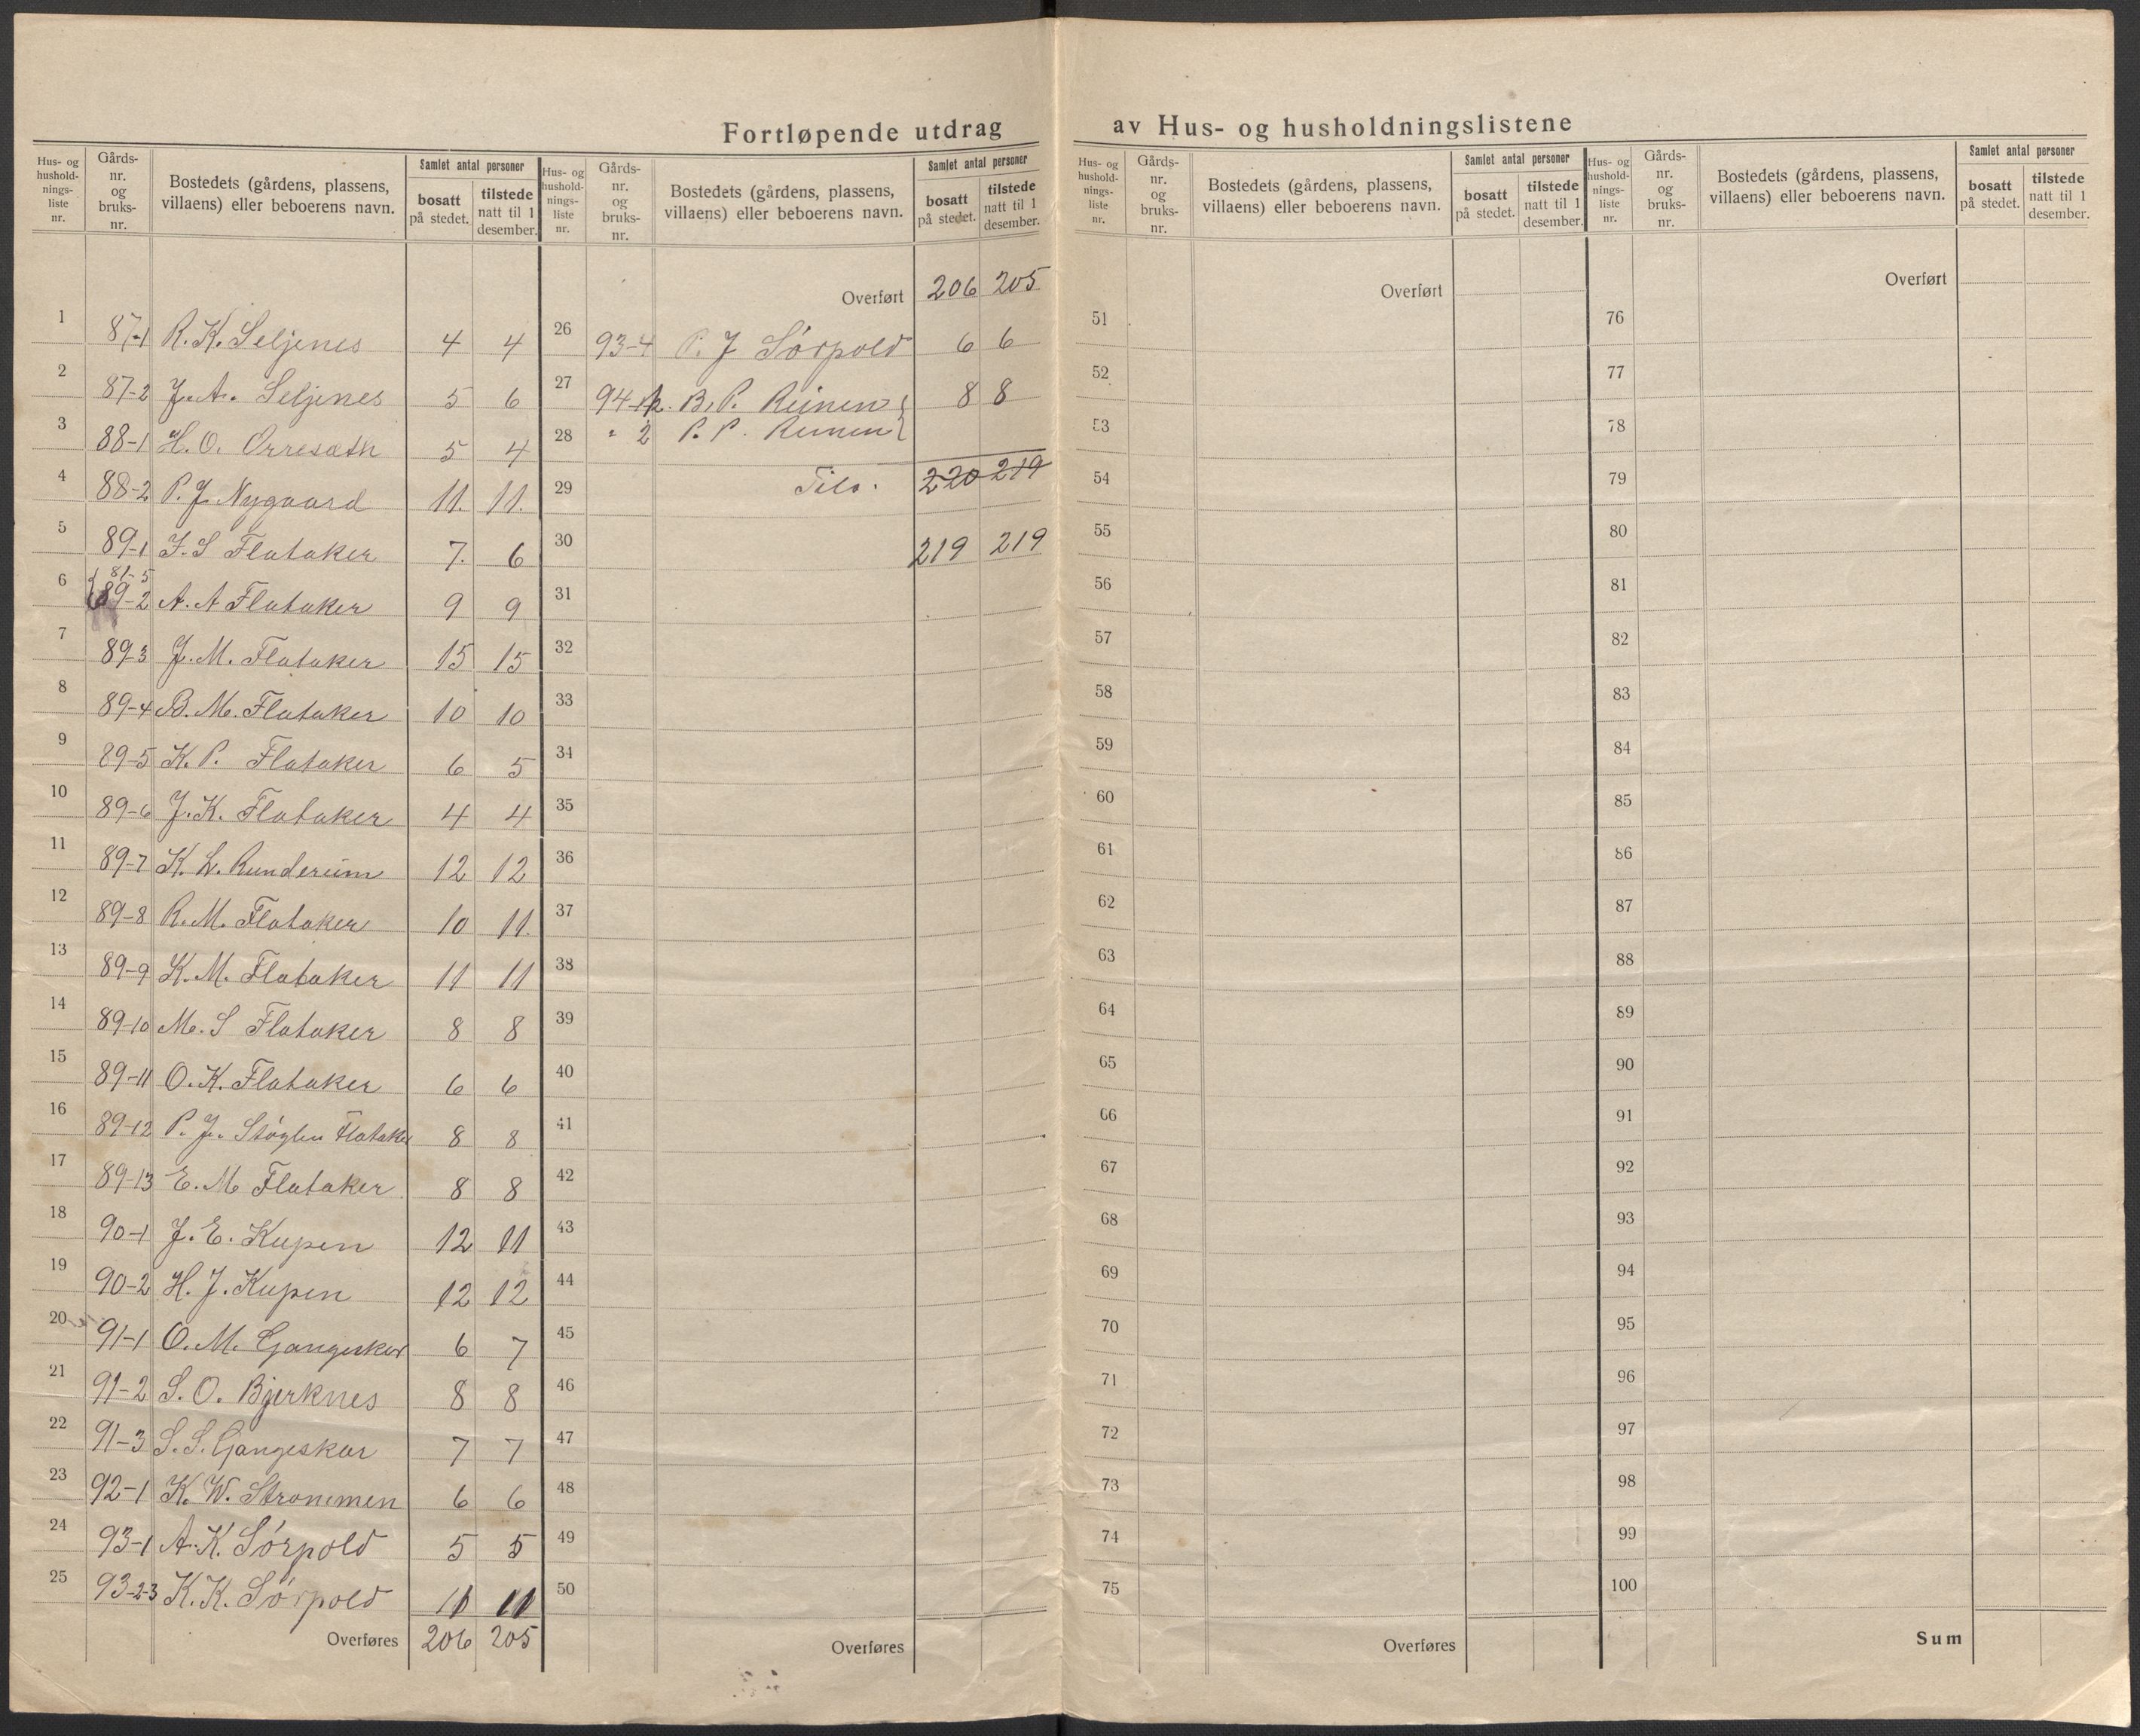 Fortløpende utdrag av Hus- og husholdningslistene
Hus- og hushold-nings-liste nr. | Gårds-nr. og bruks-nr. | Bostedets (gårdens, plassens, villaens) eller beboerens navn. | Samlet antal personer | bosatt på stedet. | tilstede natt til 1 desember.
1 87-1 R. K. Seljenes 4 4
2 87-2 J. A. Seljenes 5 6
3 88-1 H. O. Orresæth 5 4
4 88-2 P. J. Nygaard 11. 11.
5 89-1 J. S Flataker 7. 6
81-5
6 89-2 A. A Flataker 9 9
7 89-3 J. M. Flataker 15 15
8 89-4 B. M. Flataker 10 10
9 89-5 K. P. Flataker 6 5
10 89-6 J. K. Flataker 4 4
11 89-7 K. L. Runderеim 12 12
12 89-8 R. M. Flataker 10 11.
13 89-9 K. M. Flataker 11 11
14 89-10 M. S Flataker 8 8
15 89-11 O. K. Flataker 6 6
16 89-12 P. J. Flataker 8 8
17 89-13 E. M Flataker 8 8
18 90-1 J. E. Kupen 12 11
19 90-2 H. J. Kupen 12 12
20 91-1 O. M. Gangeskar 6 7
21 91-2 S. O. Bjerknes 8 8
22 91-3 S. S. Gangeskar 7 7
23 92-1 K. W. Strommen 6 6
24 93-1 A. K. Sørpold 5 5
25 93-2-3 K. K. Sørpold 11 11
Overføres 206 205
Hus- og hushold-nings-liste nr. | Gårds-nr. og bruks-nr. | Bostedets (gårdens, plassens, villaens) eller beboerens navn. | Samlet antal personer | bosatt på stedet. | tilstede natt til 1 desember.
Overført 206 205
26 93-4 P. J Sørpold 6 6
27 94-1 B. P. Reinen 8 8
28 " 2 P. P. Reinen
29 Tils. 220 219
30 219 219
31
32
33
34
35
36
37
38
39
40
41
42
43
44
45
46
47
48
49
50
Overføres
Hus- og hushold-nings-liste nr. | Gårds-nr. og bruks-nr. | Bostedets (gårdens, plassens, villaens) eller beboerens navn. | Samlet antal personer | bosatt på stedet. | tilstede natt til 1 desember.
Overført
51
52
53
54
55
56
57
58
59
60
61
62
63
64
65
66
67
68
69
70
71
72
73
74
75
Overføres
Hus- og hushold-nings-liste nr. | Gårds-nr. og bruks-nr. | Bostedets (gårdens, plassens, villaens) eller beboerens navn. | Samlet antal personer | bosatt på stedet. | tilstede natt til 1 desember.
Overført
76
77
78
79
80
81
82
83
84
85
86
87
88
89
90
91
92
93
94
95
96
97
98
99
100
Sum